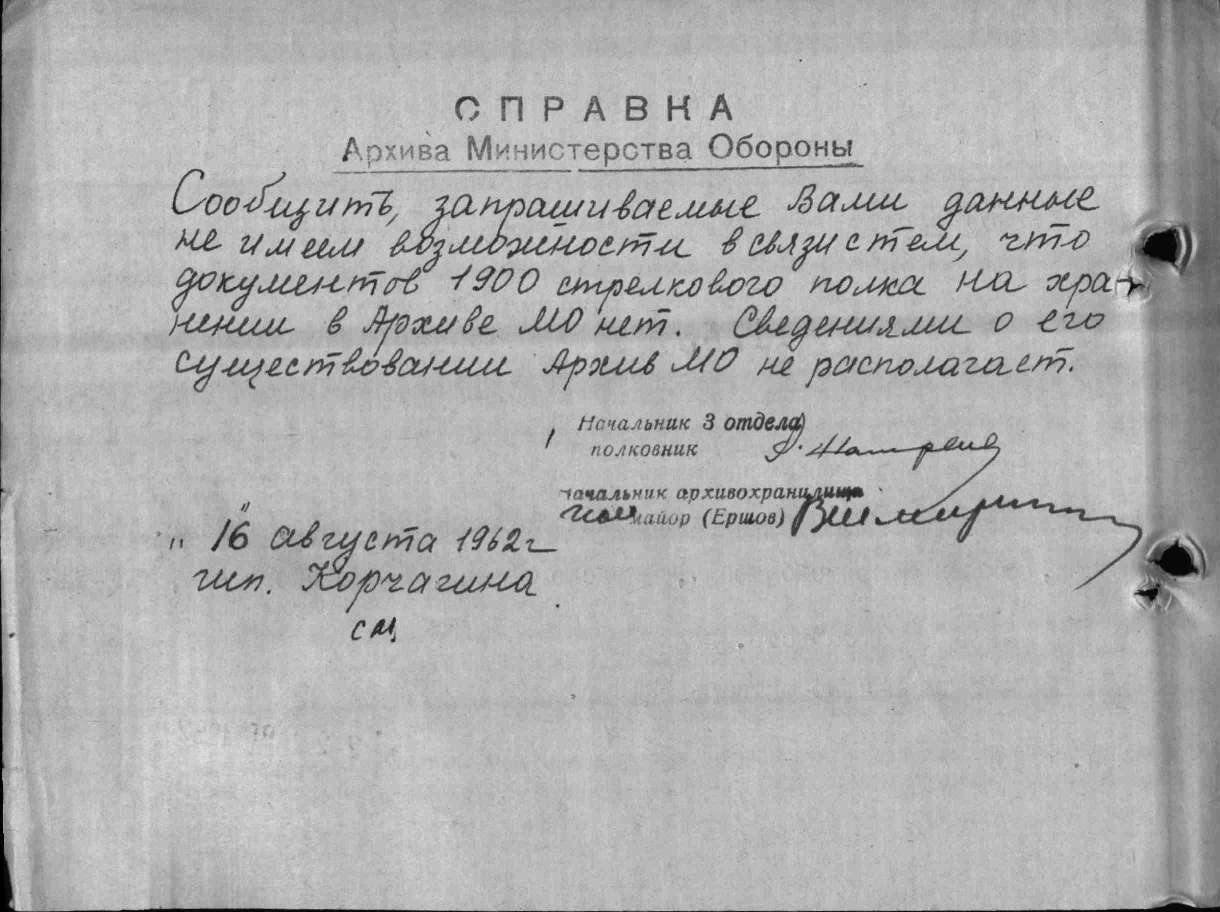 СПРАВКА
Архива Министерства Обороны
Сообщить, запрашиваемые Вами данные
не имеем возможности в связи с тем, что
документов 1900 стрелкового полка на хра-
нении в Архиве МО нет. Сведениями о его
существовании Архив МО не располагает.
Начальник 3 отдела
полковник
начальник архивохранилища
майор (Ершов)
"16" августа 1962г
исп. Корчагина